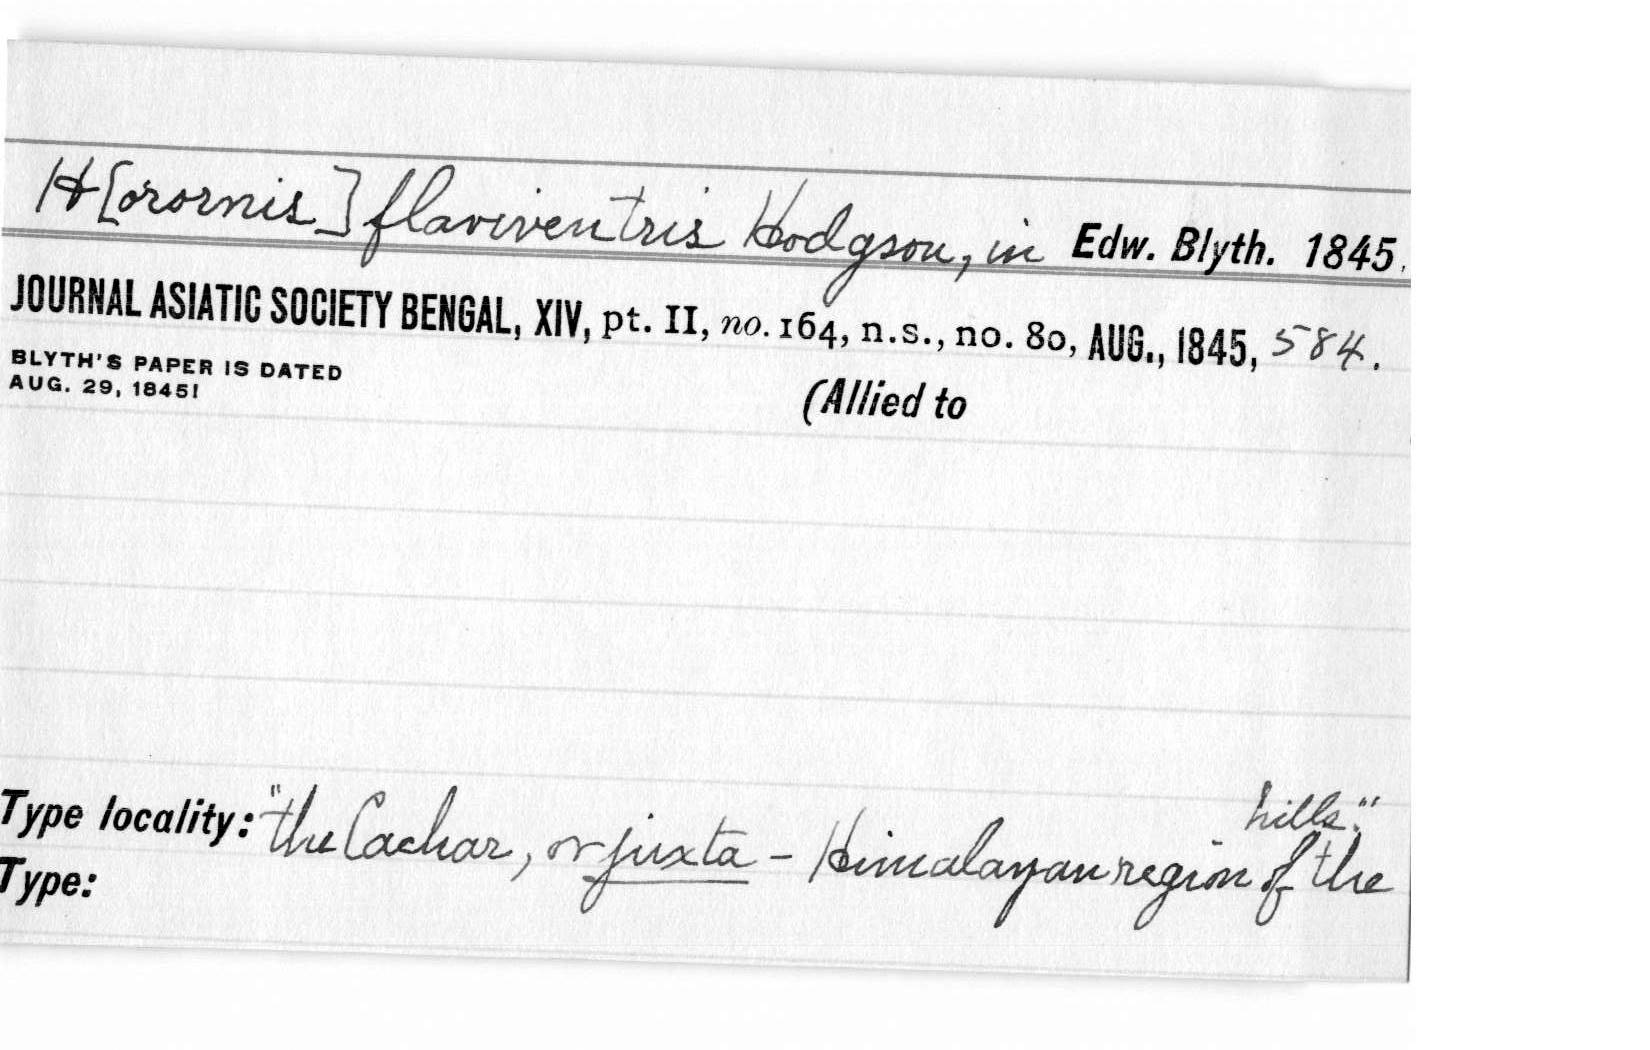 H[orornis] flaviventris Hodgson, in Edw. Blyth. 1845.
JOURNAL ASIATIC SOCIETY BENGAL, XIV, pt. II, no. 164, n.s., no. 80, AUG., 1845, 584.
BLYTH'S PAPER IS DATED
AUG. 29, 1845!
(Allied to
hills."
Type locality: "the Cachar, or juxta - Himalayan region of the
Type: